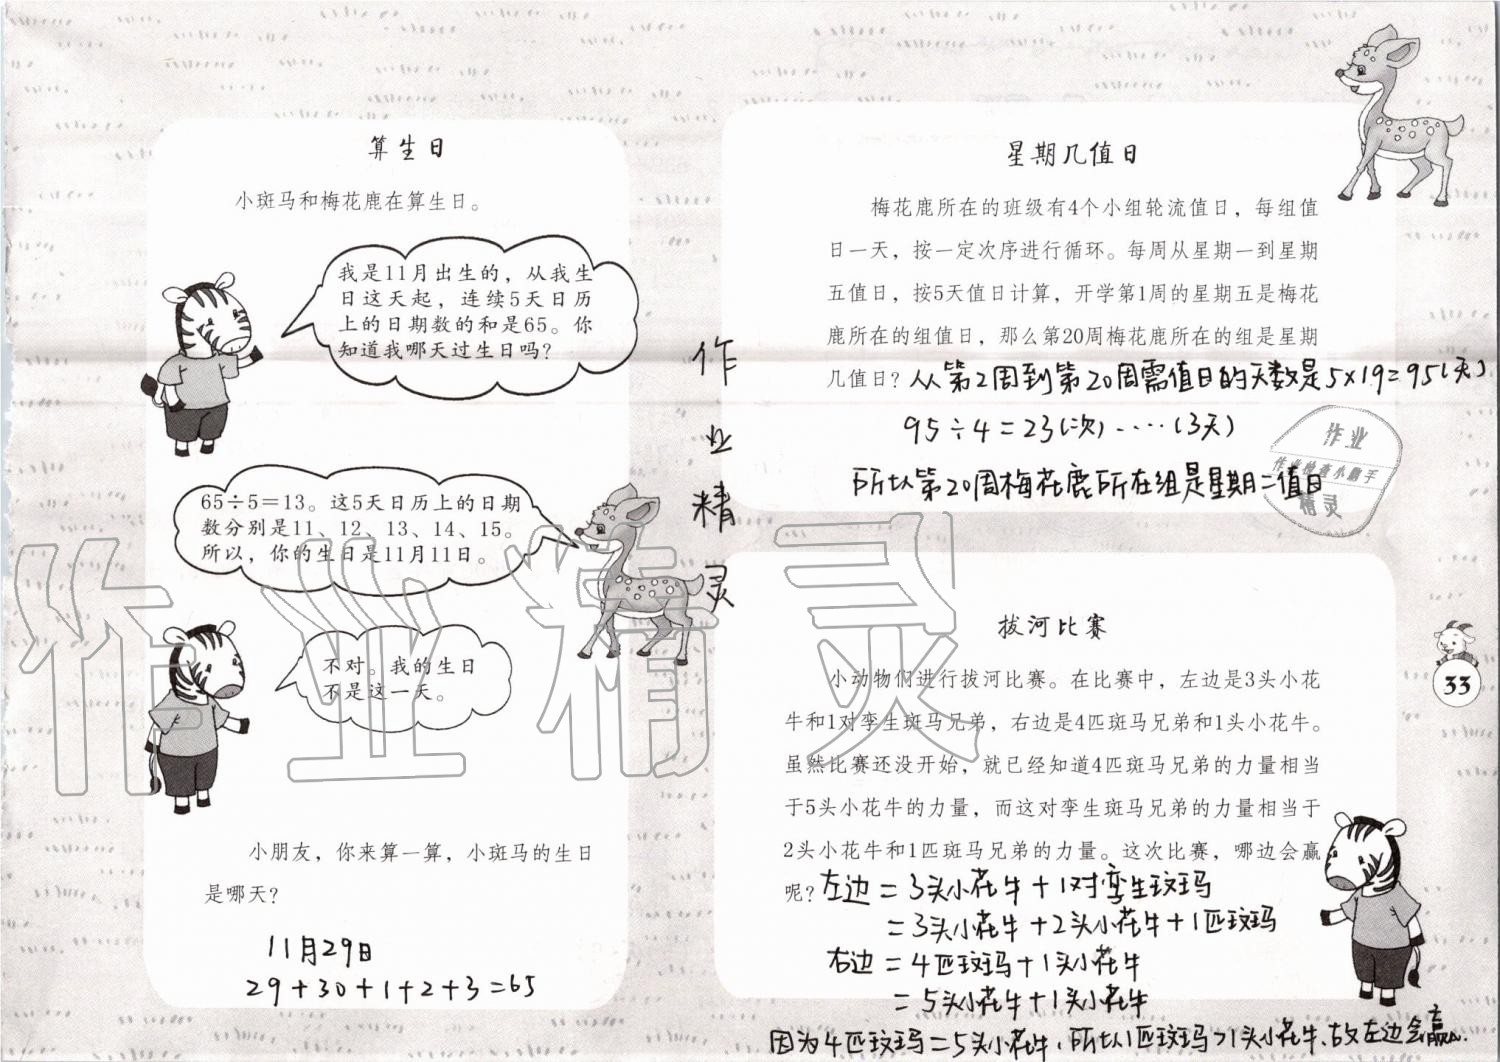 算生日
小斑马和梅花鹿在算生日。
我是11月出生的，从我生
日这天起，连续5天日历
上的日期数的和是65。你
知道我哪天过生日吗？
65÷5=13。这5天日历上的日期
数分别是11、12、13、14、15。
所以，你的生日是11月11日。
不对。我的生日
不是这一天。
小朋友，你来算一算，小斑马的生日
是哪天？
11月29日
29+30+1+2+3=65
作业精灵
作业精灵
星期几值日
梅花鹿所在的班级有4个小组轮流值日，每组值
日一天，按一定次序进行循环。每周从星期一到星期
五值日，按5天值日计算，开学第1周的星期五是梅花
鹿所在的组值日，那么第20周梅花鹿所在的组是星期
几值日？从第2周到第20周需值日的天数是5×19=95(天)
95÷4=23(次)……(3天)
所以第20周梅花鹿所在组是星期二值日
作业
作业检查小助手
精灵
拔河比赛
小动物们进行拔河比赛。在比赛中，左边是3头小花
牛和1对孪生斑马兄弟，右边是4匹斑马兄弟和1头小花牛。
虽然比赛还没开始，就已经知道4匹斑马兄弟的力量相当
于5头小花牛的力量，而这对孪生斑马兄弟的力量相当于
2头小花牛和1匹斑马兄弟的力量。这次比赛，哪边会赢
呢？左边=3头小花牛+1对孪生斑玛
=3头小花牛+2头小花牛+1匹斑玛
右边=4匹斑玛+1头小花牛
=5头小花牛+1头小花牛
因为4匹斑玛=5头小花牛，所以1匹斑玛>1头小花牛，故左边会赢.
33